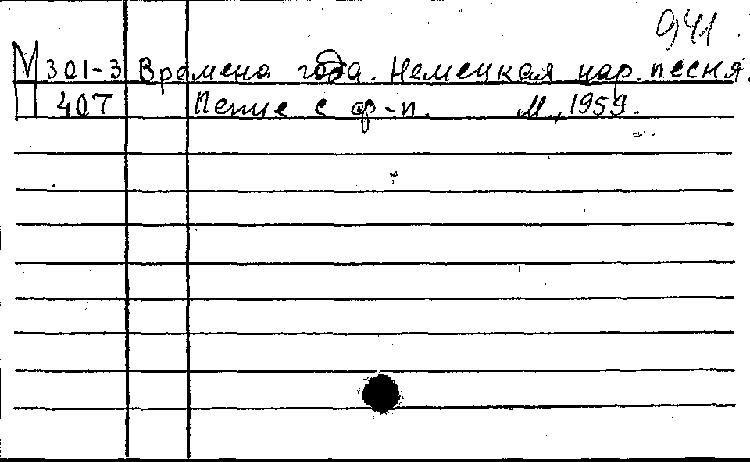 941
М 301-3 Времена года. Немецкая нар. песня.
П 407 Пение с ф-п. М., 1959.